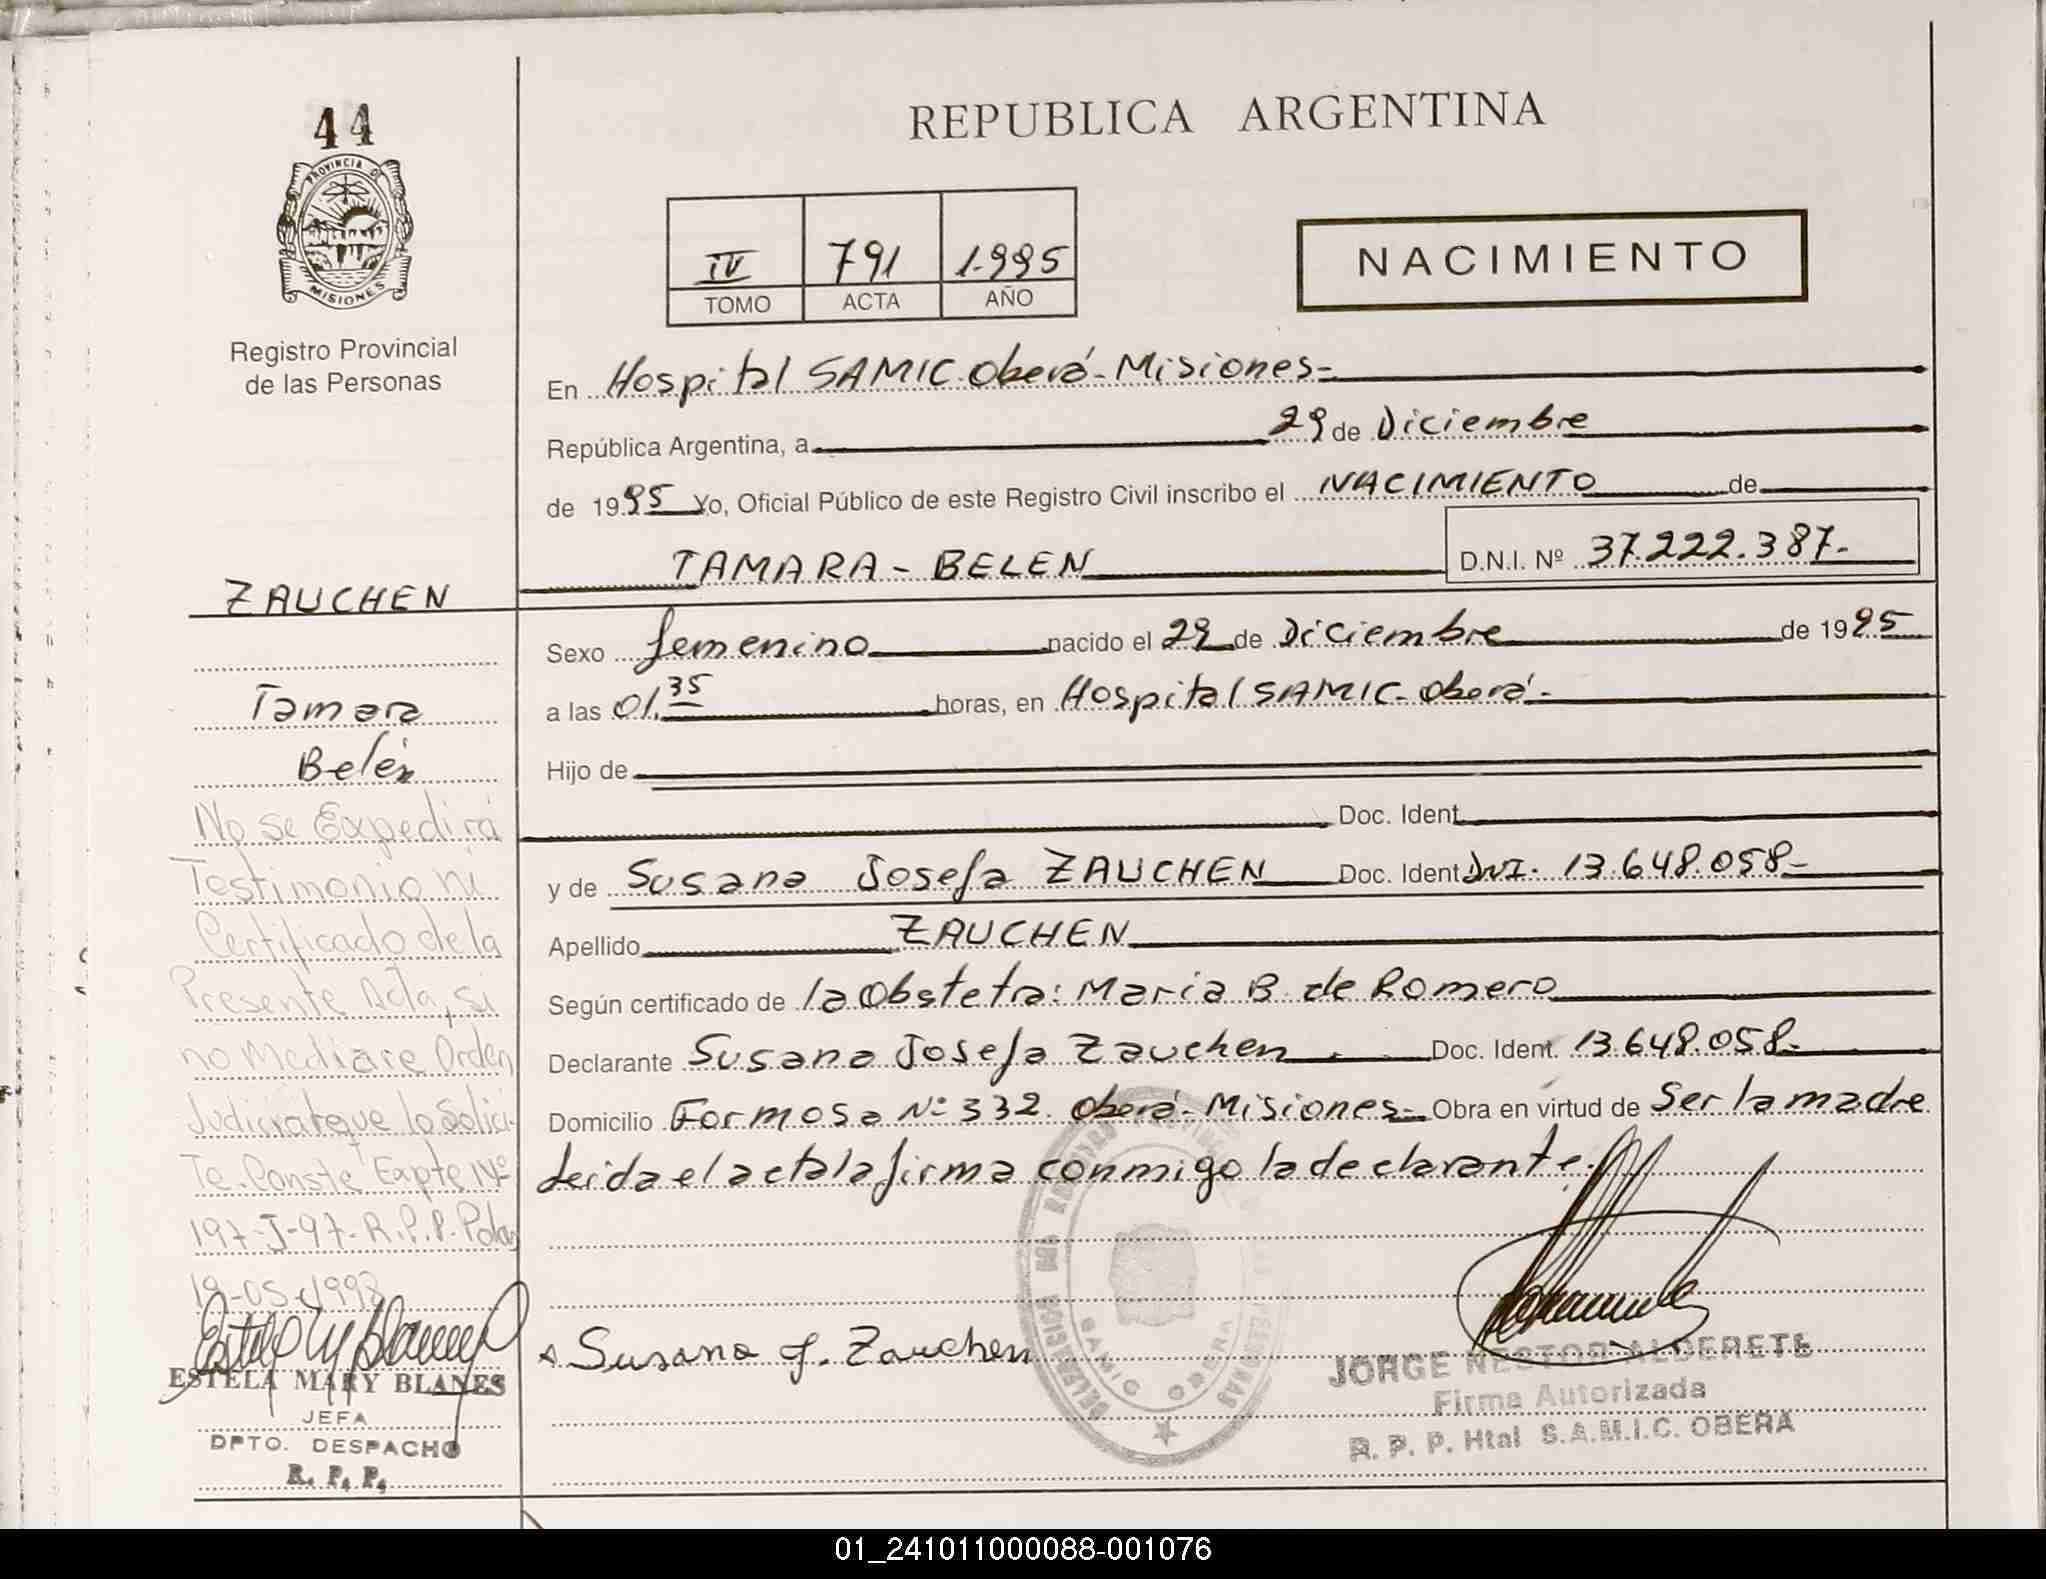 44
PROVINCIA DE
MISIONES
Registro Provincial
de las Personas
ZAUCHEN
Tamara
Belén
No se Expedirá
Testimonio ni
Certificado de la
Presente Acta, si
no Mediare Orden
Judicial que lo Solici-
te. Conste Expte Nº
197-J-97-R.P.P. Pdas
19-05-1998
ESTELA MARY BLANES
JEFA
DPTO. DESPACHO
R. P. P.
REPUBLICA ARGENTINA
IV 791 1.995
TOMO ACTA AÑO
NACIMIENTO
En Hospital SAMIC-Oberá-Misiones-
República Argentina, a 29 de Diciembre
de 1995 Yo, Oficial Público de este Registro Civil inscribo el NACIMIENTO de
TAMARA-BELEN D.N.I. Nº 37.222.387-
Sexo femenino nacido el 29 de Diciembre de 1995
a las 01.35 horas, en Hospital SAMIC-Oberá-
Hijo de
Doc. Ident.
y de Susana Josefa ZAUCHEN Doc. Ident DNI. 13.648.058-
Apellido ZAUCHEN
Según certificado de la Obstetra: Maria B. de Romero
Declarante Susana Josefa Zauchen Doc. Ident. 13.648.058-
Domicilio Formosa Nº 332. Oberá-Misiones- Obra en virtud de Ser la madre
leida el acta la firma conmigo la declarante.
Susana J. Zauchen
SAMIC OBERA
JORGE NESTOR ALDERETE
Firma Autorizada
R. P. P. Htal S.A.M.I.C. OBERA
01_241011000088-001076